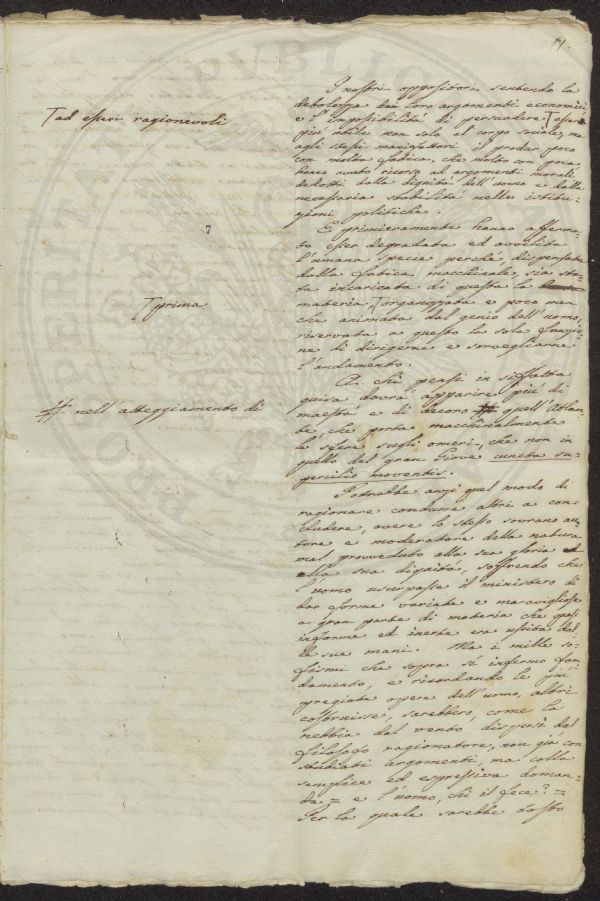 14.
I nostri oppositori sentendo la
debolezza dei loro argomenti economici
e l'impossibilità di persuadere ⌈ essere
più utile non solo al corpo sociale, ma
agli stessi manifattori il produr poco
con molta fatica, che molto con poca
hanno avuto ricorso ad argomenti morali
dedotti dalla dignità dell'uomo e dalla
necessaria stabilità nelle istitu-
zioni politiche.
E primieramente hanno afferma-
to esser degradata ed avvilita
l'umana specie perchè, dispensata
dalla fatica macchinale, sia sta-
ta incaricata di questa la
materia ⌈ organizzata e poco men
che animata dal genio dell'uomo,
riservata a questo la sola funzio-
ne di dirigerne e sorvegliarne
l'andamento.
A chi pensi in siffatta
guisa dovrà apparire più di
maestà e di decoro # quell'Atlan-
te, che porta macchinalmente
le sfere sugli omeri, che non in
quello del gran Giove cuncta su-
percilio moventis.
Potrebbe anzi quel modo di
ragionare condurre altri a con-
cludere, avere lo stesso sovrano au-
tore e moderatore della natura
mal provveduto alla sua gloria e
alla sua dignità, soffrendo che
l'uomo usurpasse il ministero di
dar forme variate e maravigliose
a gran parte di materia che quasi
informe ed inerte era uscita dal-
le sue mani. Ma i mille so-
fismi che sopra sì infermo fon-
damento, e ricordando le più
pregiate opere dell'uomo, altri
costruisse, sarebbero, come la
nebbia dal vento dispersi dal
filosofo ragionatore, non già con
studiati argomenti, ma colla
semplice ed espressiva doman-
da = e l'uomo, chi il fece? =
Per la quale sarebbe tosto
⌈ ad esseri ragionevoli
7
⌈ prima
# nell'atteggiamento di